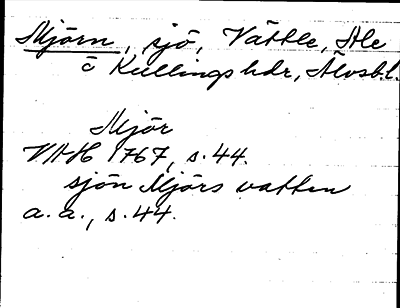 Mjörn, sjö, Vättle, Ale
o Kullings hdr, Älvsb.l.
Mjör
VAH 1767, s. 44.
sjön Mjörs vatten
a.a., s. 44.